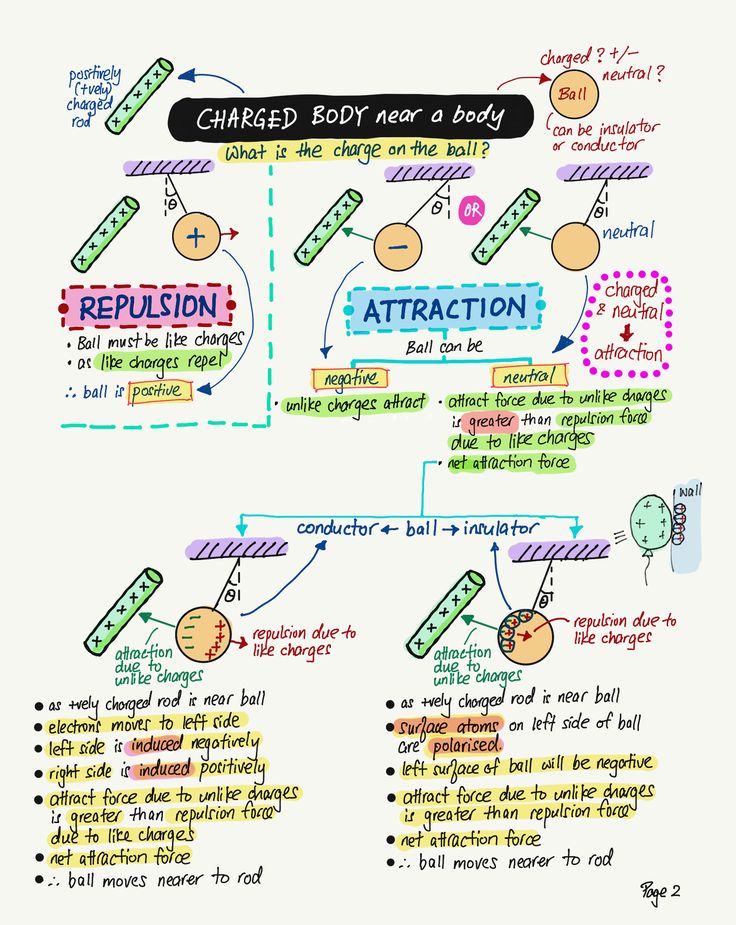 positively
(+vely)
charged
rod
charged? +/-
neutral?
Ball
can be insulator
or conductor
CHARGED BODY near a body
What is the charge on the ball?
θ
+
θ
-
OR
θ
neutral
REPULSION
• Ball must be like charges
• as like charges repel
∴ ball is positive
ATTRACTION
Ball can be
negative
• unlike charges attract
neutral
• attract force due to unlike charges
is greater than repulsion force
due to like charges
• net attraction force
charged
& neutral
↓
attraction
wall
conductor ← ball → insulator
θ
attraction
due to
unlike charges
repulsion due to
like charges
θ
attraction
due to
unlike charges
repulsion due to
like charges
• as +vely charged rod is near ball
• electrons moves to left side
• left side is induced negatively
• right side is induced positively
• attract force due to unlike charges
is greater than repulsion force
due to like charges
• net attraction force
• ∴ ball moves nearer to rod
• as +vely charged rod is near ball
• surface atoms on left side of ball
are polarised.
• left surface of ball will be negative
• attract force due to unlike charges
is greater than repulsion force
• net attraction force
• ∴ ball moves nearer to rod
Page 2